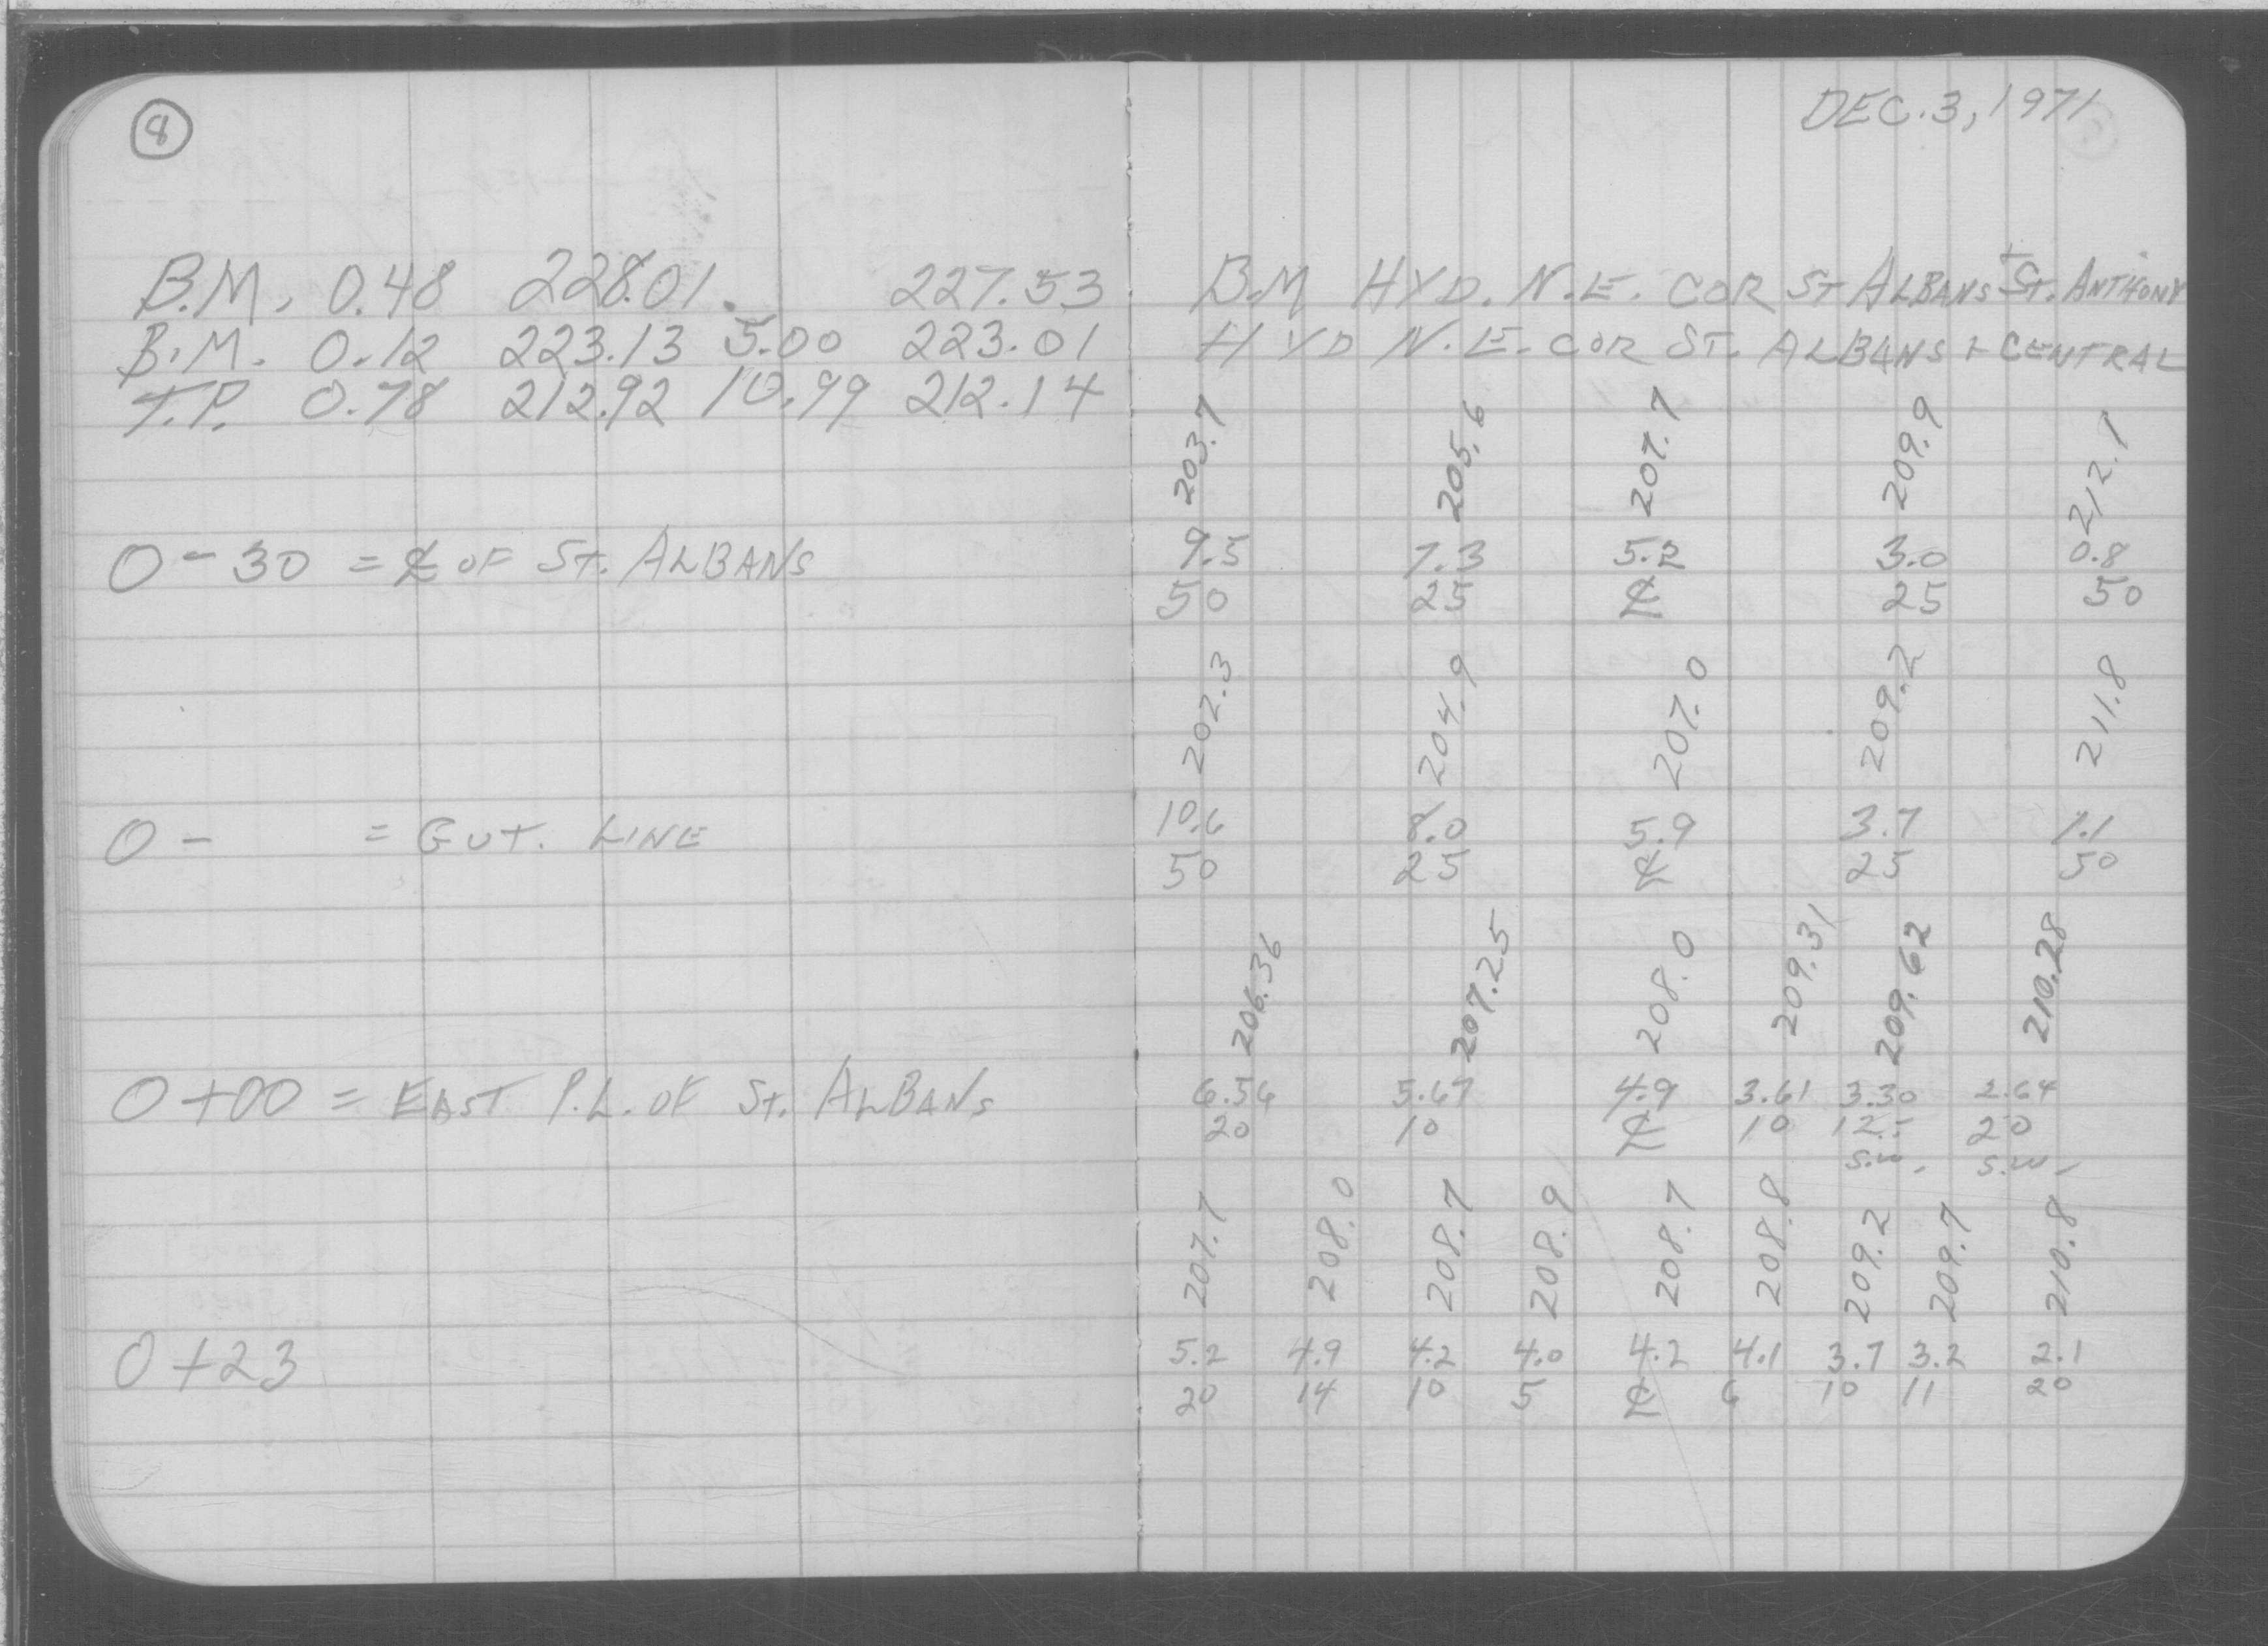 8
DEC. 3, 1971
B.M. 0.48 228.01 227.53 B.M HYD. N.E. COR ST ALBANS + ST. ANTHONY
B.M. 0.12 223.13 5.00 223.01 HYD N.E. COR ST. ALBANS + CENTRAL
T.P. 0.78 212.92 10.99 212.14
203.7 205.6 207.7 209.9 212.1
0-30 = ℄ OF ST. ALBANS 9.5 7.3 5.2 3.0 0.8
50 25 ℄ 25 50
202.3 204.9 207.0 209.2 211.8
0- = GUT. LINE 10.6 8.0 5.9 3.7 1.1
50 25 ℄ 25 50
206.36 207.25 208.0 209.31 209.62 210.28
0+00 = EAST P.L. OF ST. ALBANS 6.56 5.67 4.9 3.61 3.30 2.64
20 10 ℄ 10 12.5 20
S.W. S.W.
207.7 208.0 208.7 208.9 208.7 208.8 209.2 209.7 210.8
0+23 5.2 4.9 4.2 4.0 4.2 4.1 3.7 3.2 2.1
20 14 10 5 ℄ 6 10 11 20